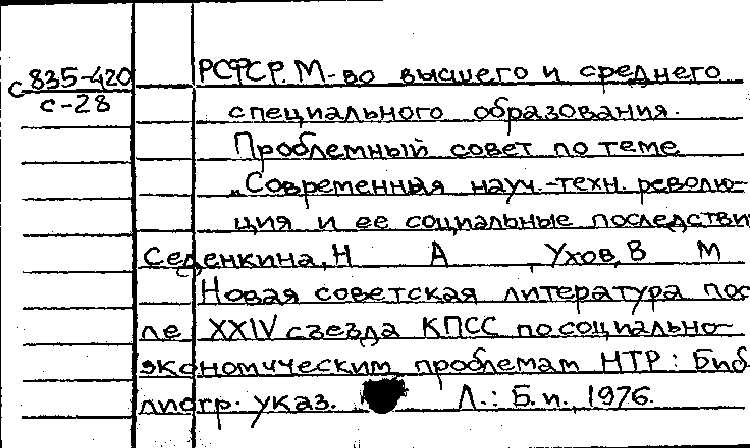 с 835-420
с-28
РСФСР. М-во высшего и среднего
специального образования.
Проблемный совет по теме
„Современная науч.-техн. револю-
ция и ее социальные последстви
Седенкина, Н А , Ухов, В М
Новая советская литература пос
ле XXIV съезда КПСС по социально-
экономическим проблемам НТР: Биб
лиогр. указ. Л.: Б.и., 1976.